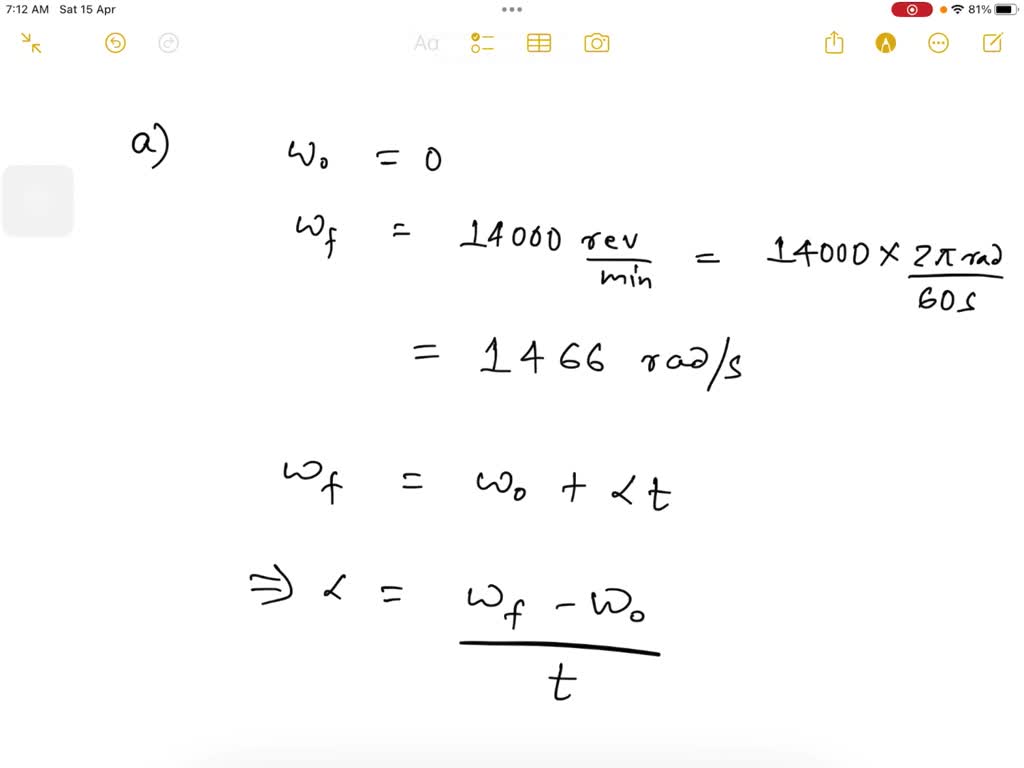 7:12 AM Sat 15 Apr
81%
Aα
a) ω₀ = 0
ω_f = 14000 rev/min = 14000 × 2π rad/60s
= 1466 rad/s
ω_f = ω₀ + αt
⇒ α = ω_f - ω₀ / t